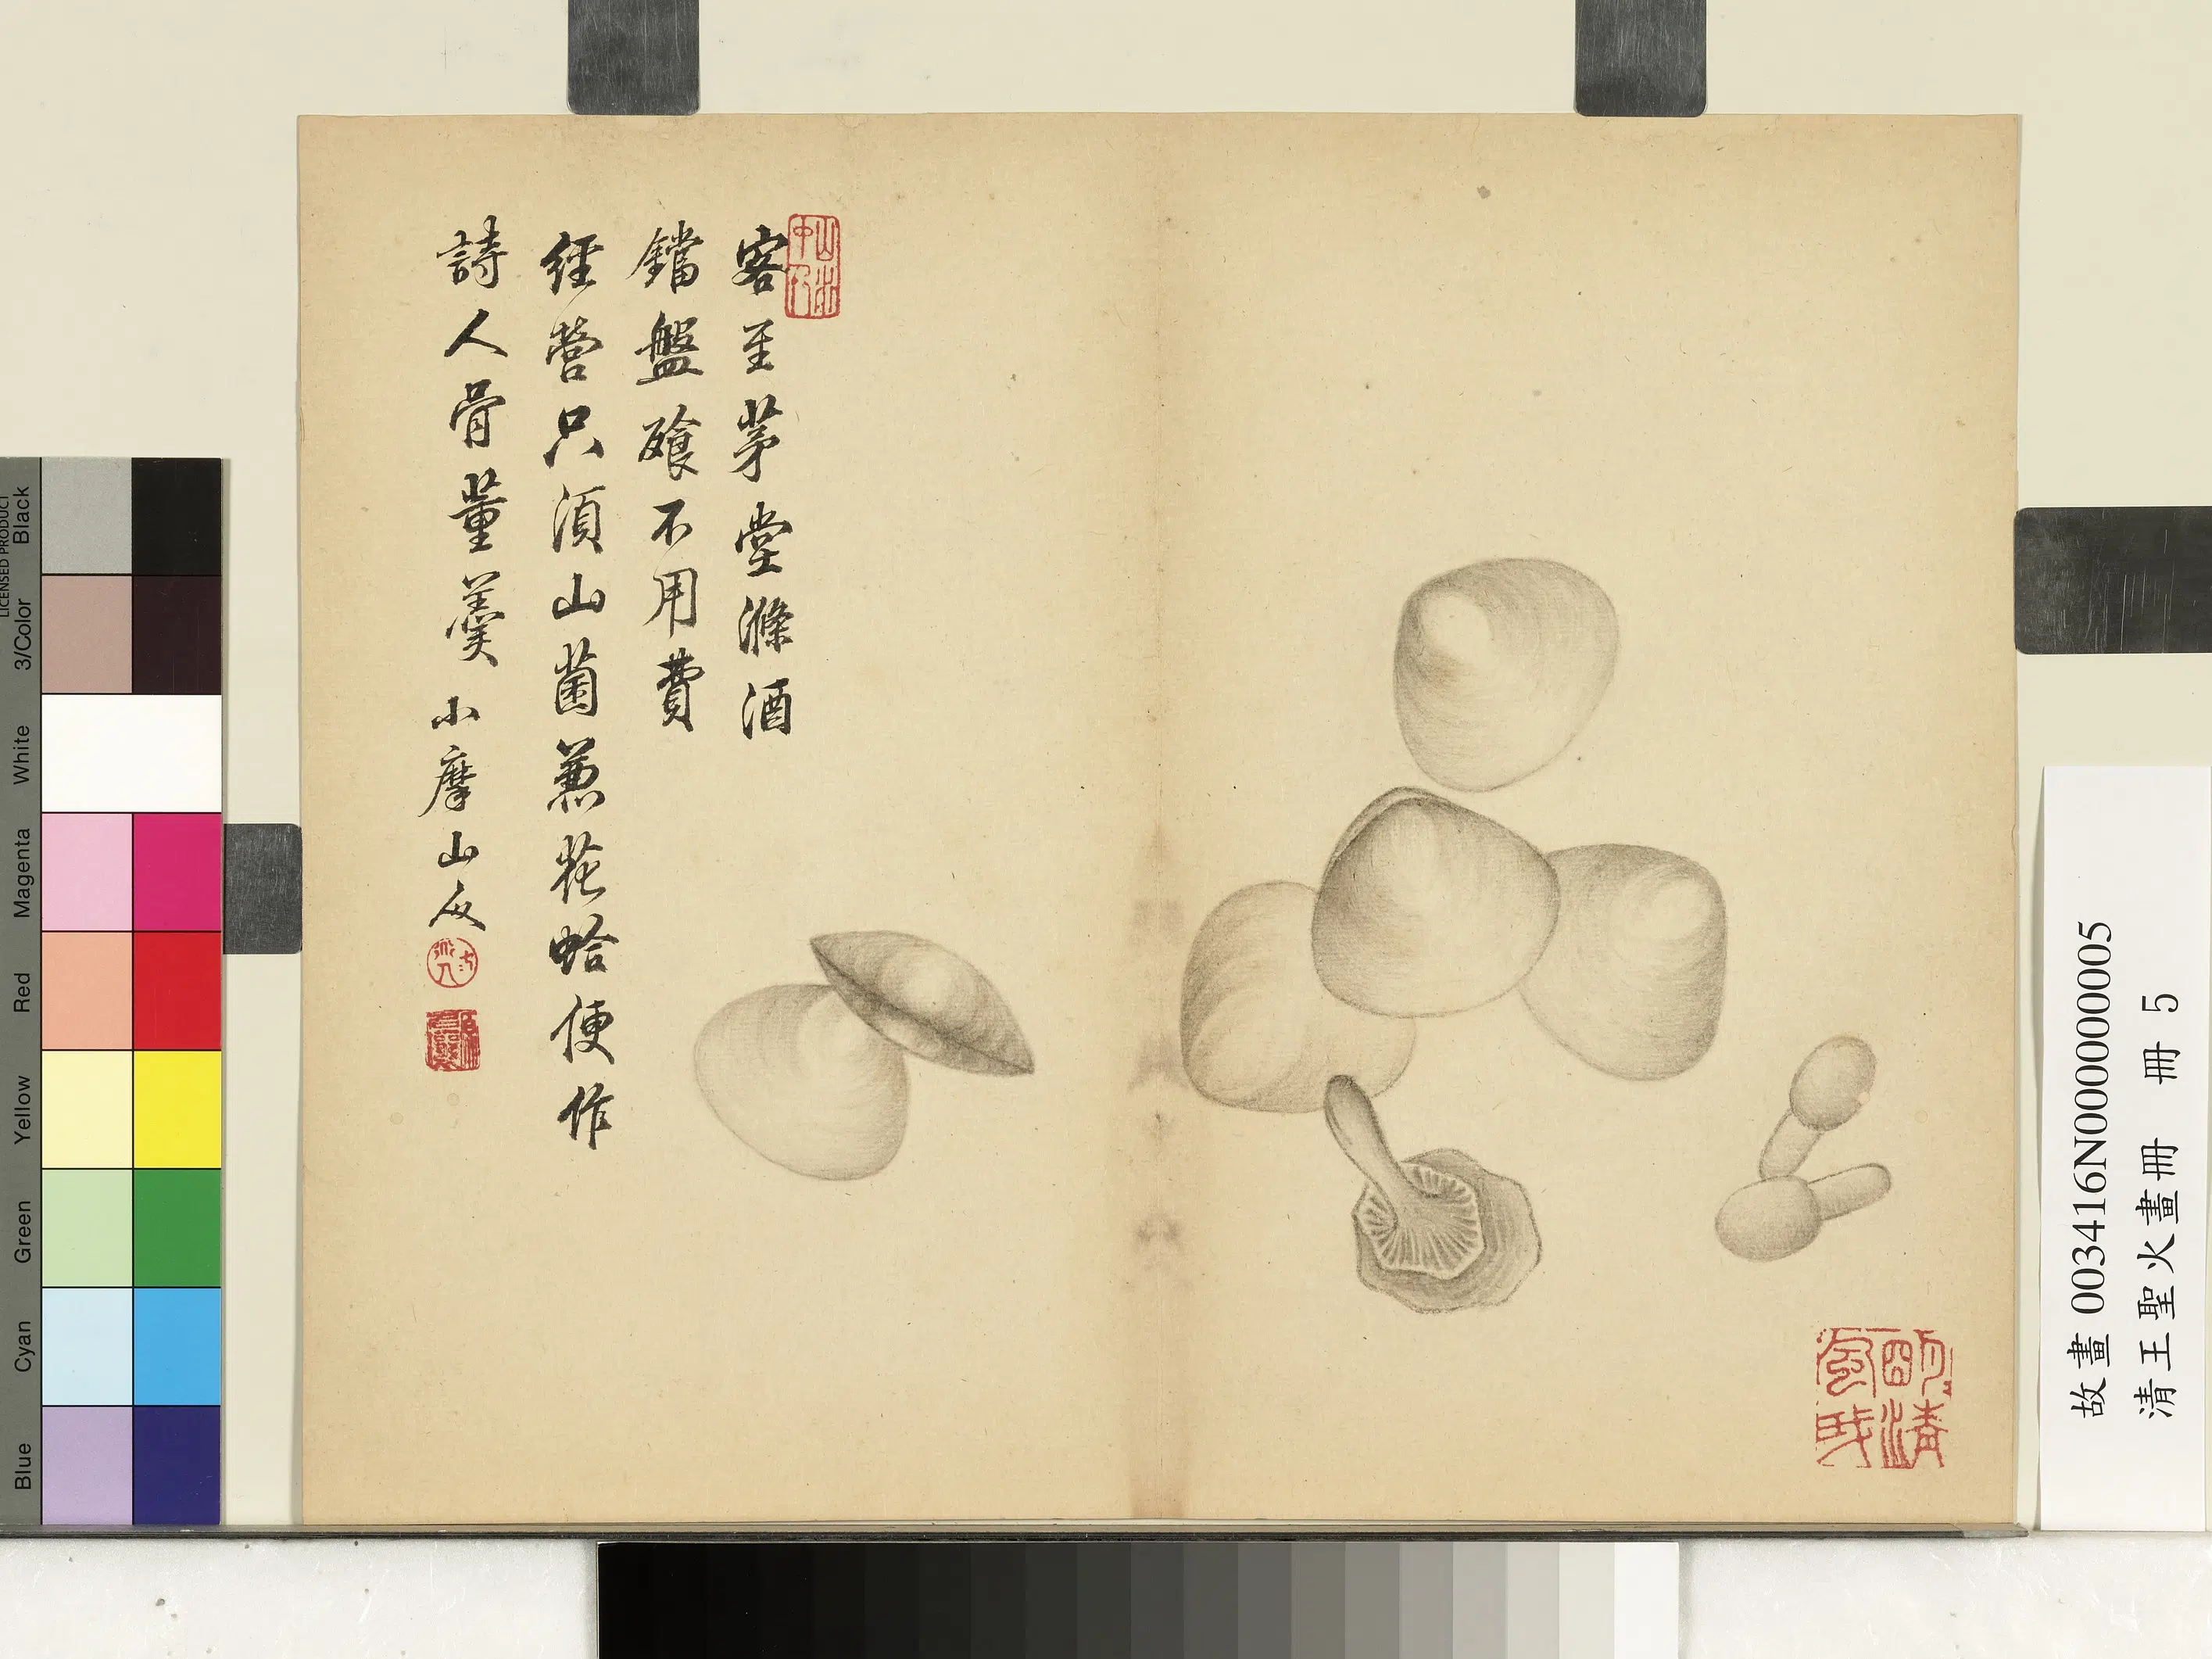 客至茅堂滌酒
鐺盤飱不用費
經營只須山菌蒸花蛤便作
詩人骨董羹 小摩山人
故畫 00341 6N000000005
清王聖火畫冊 冊 5
Black
3/Color
White
Magenta
Red
Yellow
Green
Cyan
Blue
LICENSED PRODUCT